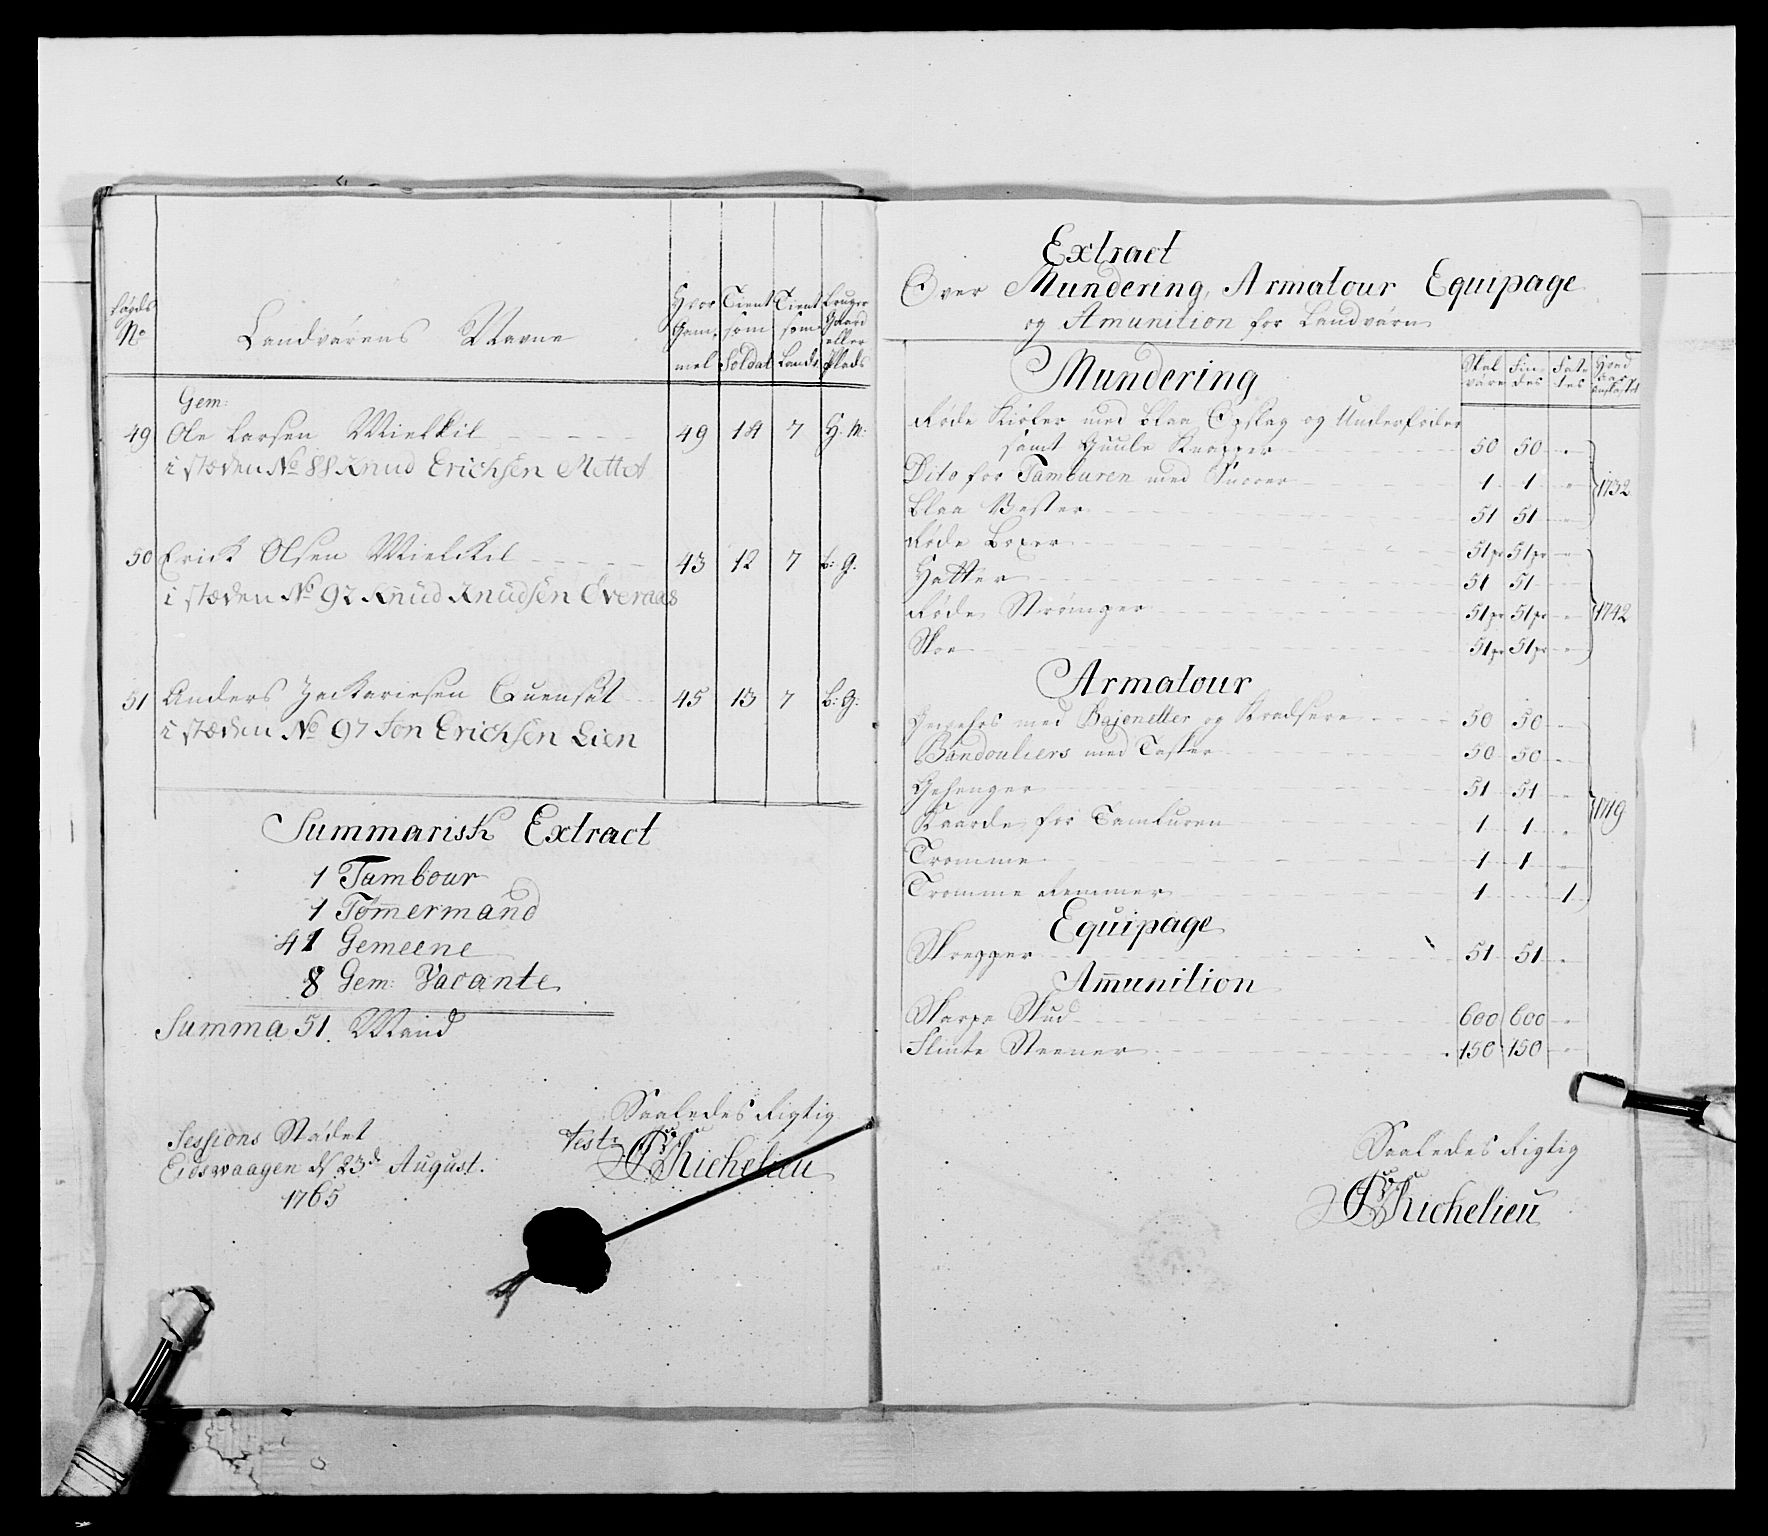 Lægds No
Landværens Navne
Hvor Gammel
Tient som Soldat
Tient som Landv:
Bruger Gaard eller Plads
Gem:
49 Ole Larsen Mielkil 49 14 7 H: M:
i stæden No 88 Knud Erichsen Mettet
50 Erick Olsen Mielckil 43 12 7 b: G:
i stæden No 92 Knud Knudsen Overaas
51 Anders Zackariesen Quensæt 45 13 7 b: G:
i stæden No 97 Jon Erichsen Lien
Summarisk Extract
1 Tambour
1 Tømmermand
41 Gemeene
8 Gem: Vacante
Summa 51 Mand
Sessions Stædet
Eidswaagen d 23d August.
1765
Saaledes Rigtig
Test:
Richelieu
Extract
Over Mundering, Armatour Equipage
og Amunition for Landværn
Mundering
Skal være
Findes
Fattes
Hvad Aar
Røde Kioler med blaa Opslag og Underfoder
samt Guule Knapper 50 50 "
Dito for Tambouren med Snorer 1 1 "
1732
Blaa Vester 51 51 "
Røde Boxer 51pr 51pr "
Hatter 51 51 "
Røde Strømper 51pr 51pr "
1742
Skoe 51pr 51pr "
Armatour
Geværs med Bajonetter og Kradsere 50 50 "
Bandouliers med Tasker 50 50 "
Gehenger 51 51 "
1719
Kaarde for Tambouren 1 1 "
Tromme 1 1 "
Tromme Remmer 1 1
Equipage
Skrepper 51 51 "
Ammunition
Skarpe Skud 600 600 "
Flinte Steener 150 150 "
Saaledes Rigtig
Richelieu